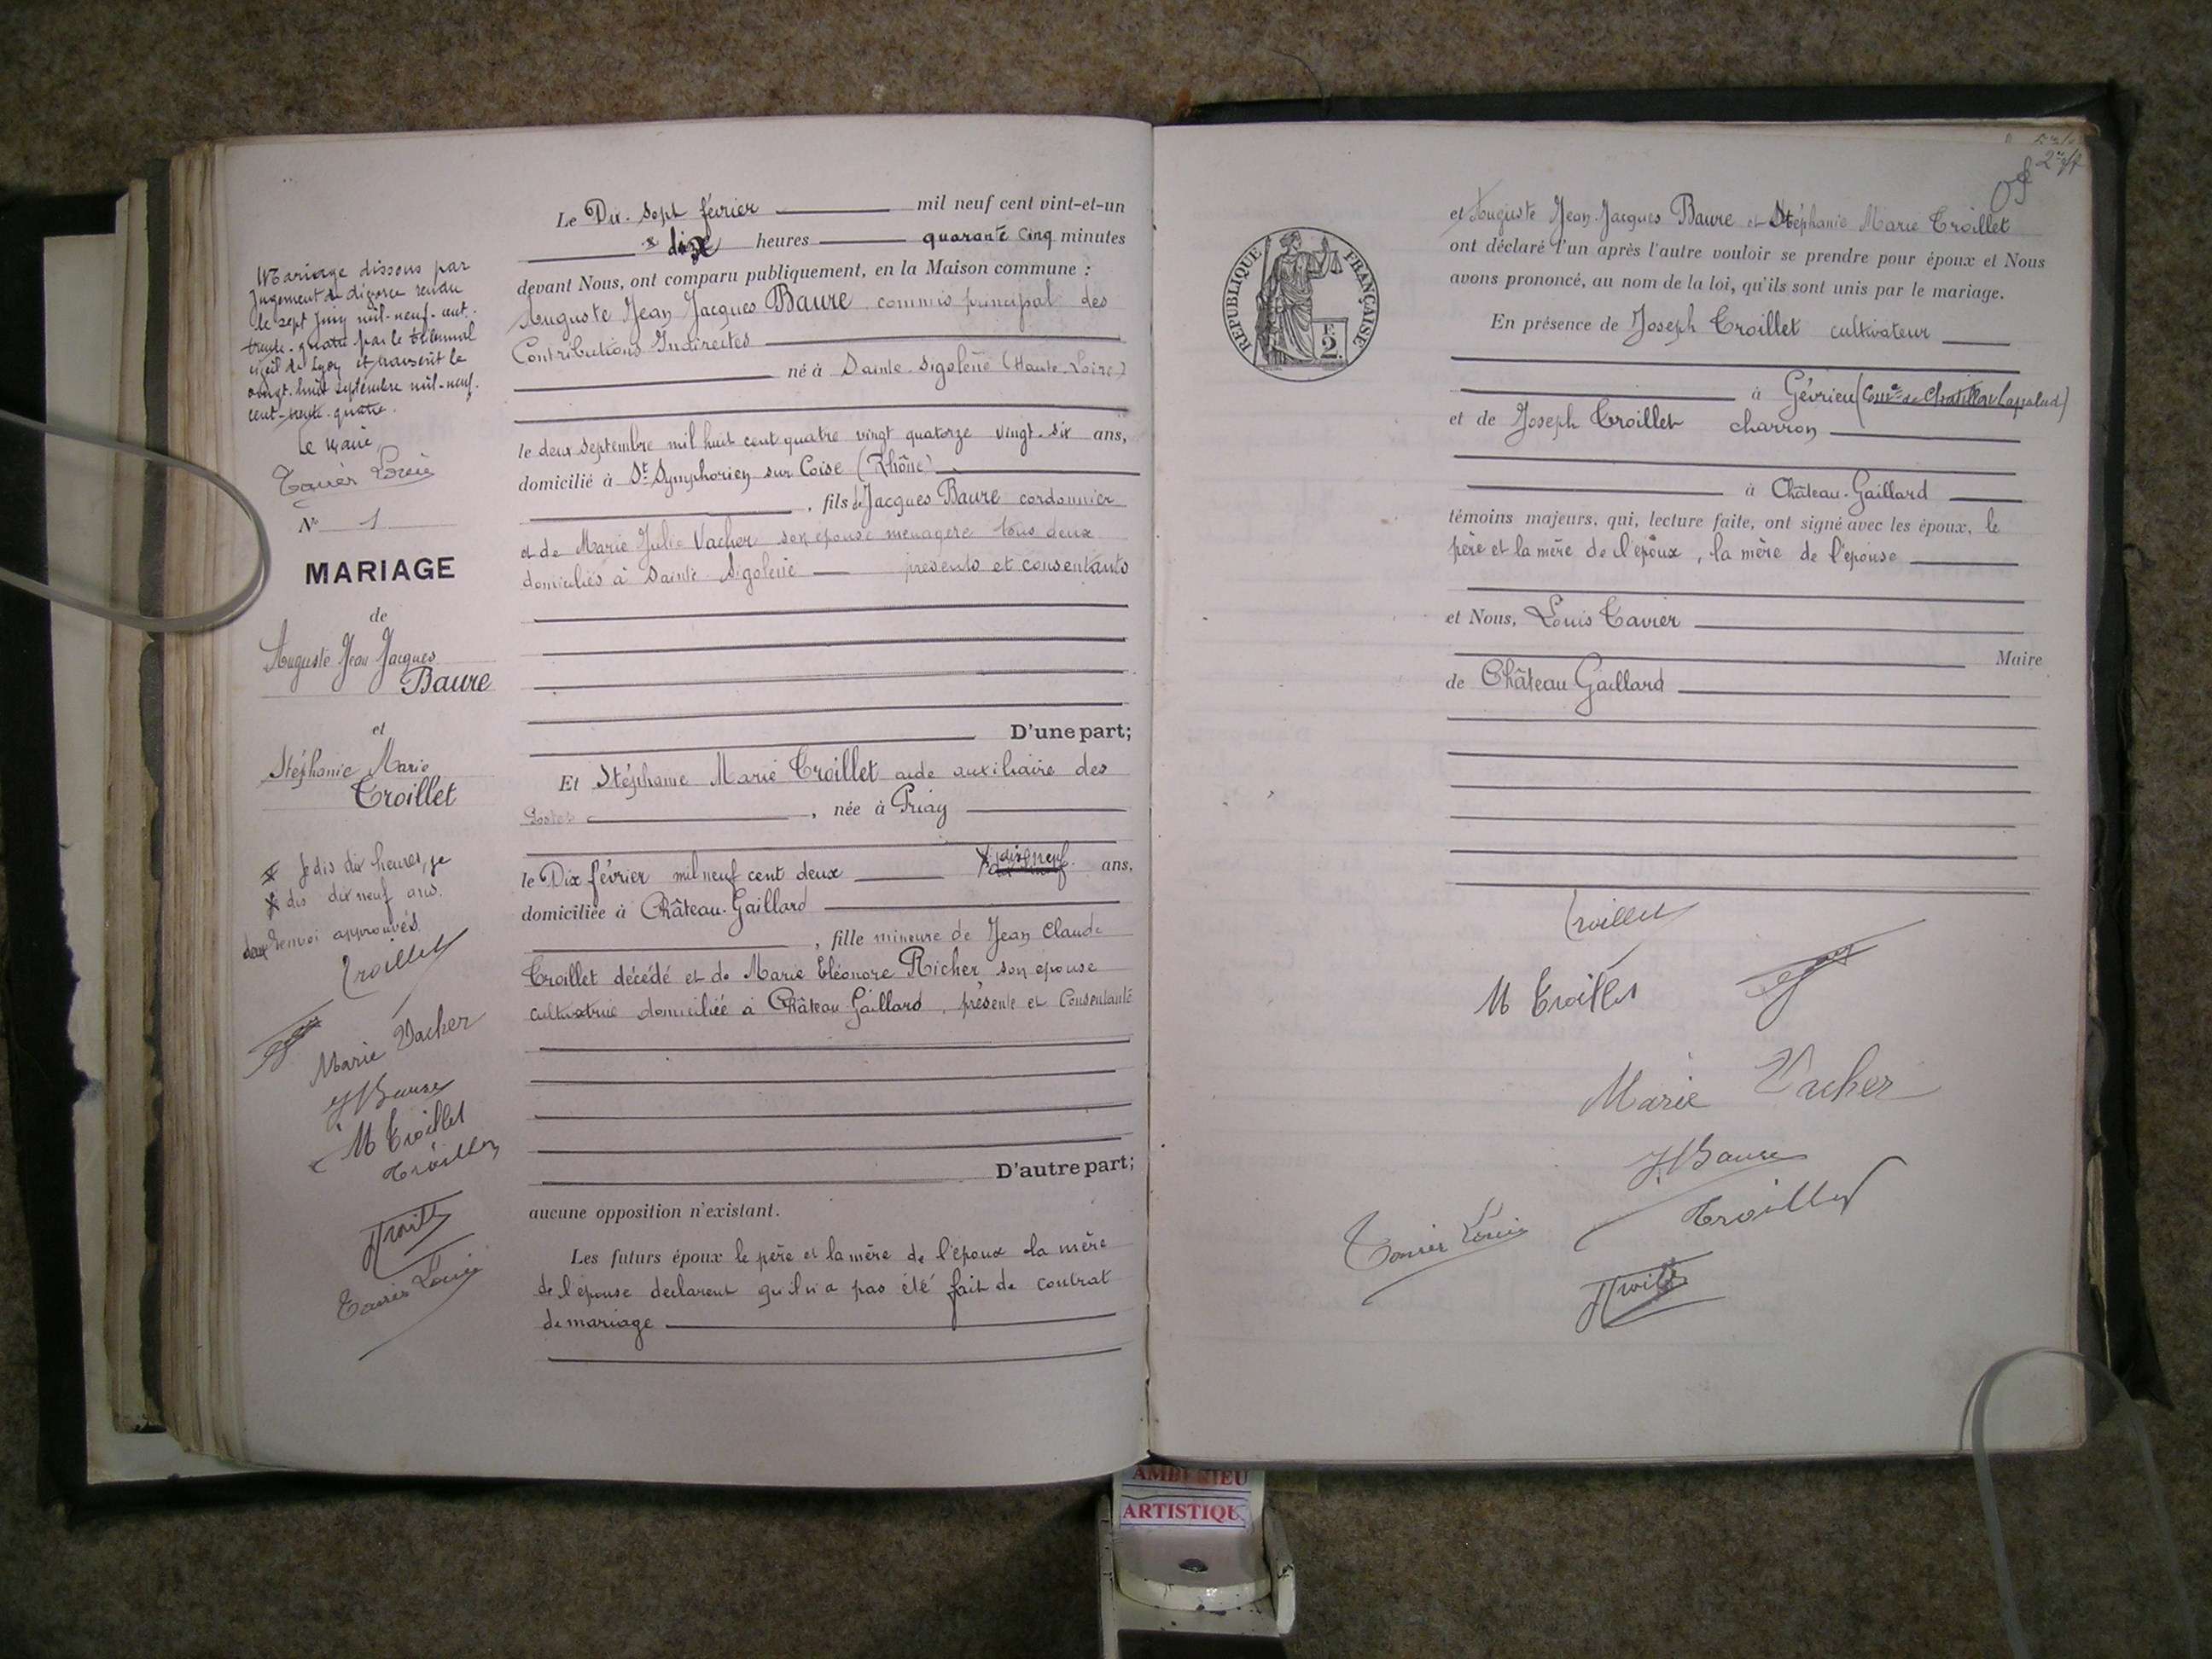 Mariage dissous par
Jugement de divorce rendu
le sept Juin mil-neuf-cent-
trente-quatre par le tribunal
civil de Lyon et transcrit le
vingt-huit septembre mil-neuf-
cent-trente-quatre.
Le Maire,
Tavier Louis
N° 1
MARIAGE
de
Auguste Jean Jacques
Baure
et
Stéphanie Marie
Troillet
Je dis dix heures, je
dis dix neuf ans.
deux renvoi approuvés.
Troillet
Marie Vacher
J Baure
M Troillet
Troillet
Troillet
Tavier Louis
Le Dix-Sept février mil neuf cent vint-et-un
dix heures quarante cinq minutes
devant Nous, ont comparu publiquement, en la Maison commune :
Auguste Jean Jacques Baure commis principal des
Contributions Indirectes
né à Sainte-Sigolène (Haute-Loire)
le deux Septembre mil huit cent quatre vingt quatorze vingt-six ans,
domicilié à St Symphorien sur Coise (Rhône)
, fils de Jacques Baure cordonnier
et de Marie Julie Vacher son épouse ménagère tous deux
domiciliés à Sainte Sigolène présents et consentants
D'une part;
Et Stéphanie Marie Troillet aide auxiliaire des
Postes , née à Priay
le Dix février mil neuf cent deux dix neuf ans.
domiciliée à Château-Gaillard
, fille mineure de Jean Claude
Troillet décédé et de Marie Eléonore Richer son épouse
cultivatrice domiciliée à Château Gaillard, présente et Consentante
D'autre part;
aucune opposition n'existant.
Les futurs époux le père et la mère de l'époux la mère
de l'épouse declarent qu'il n'a pas été fait de contrat
de mariage
2
et Auguste Jean-Jacques Baure et Stéphanie Marie Troillet
ont déclaré l'un après l'autre vouloir se prendre pour époux et Nous
avons prononcé, au nom de la loi, qu'ils sont unis par le mariage.
RÉPUBLIQUE FRANÇAISE
F.
2.
En présence de Joseph Troillet cultivateur
à Gévrieu (Cne de Chatillon Lapalud)
et de Joseph Troillet charron
à Château-Gaillard
témoins majeurs, qui, lecture faite, ont signé avec les époux, le
père et la mère de l'époux, la mère de l'épouse
et Nous, Louis Tavier
Maire
de Château Gaillard
Troillet
M Troillet
Marie Vacher
J Baure
Tavier Louis
Troillet
Troillet
AMBERIEU
ARTISTIQU